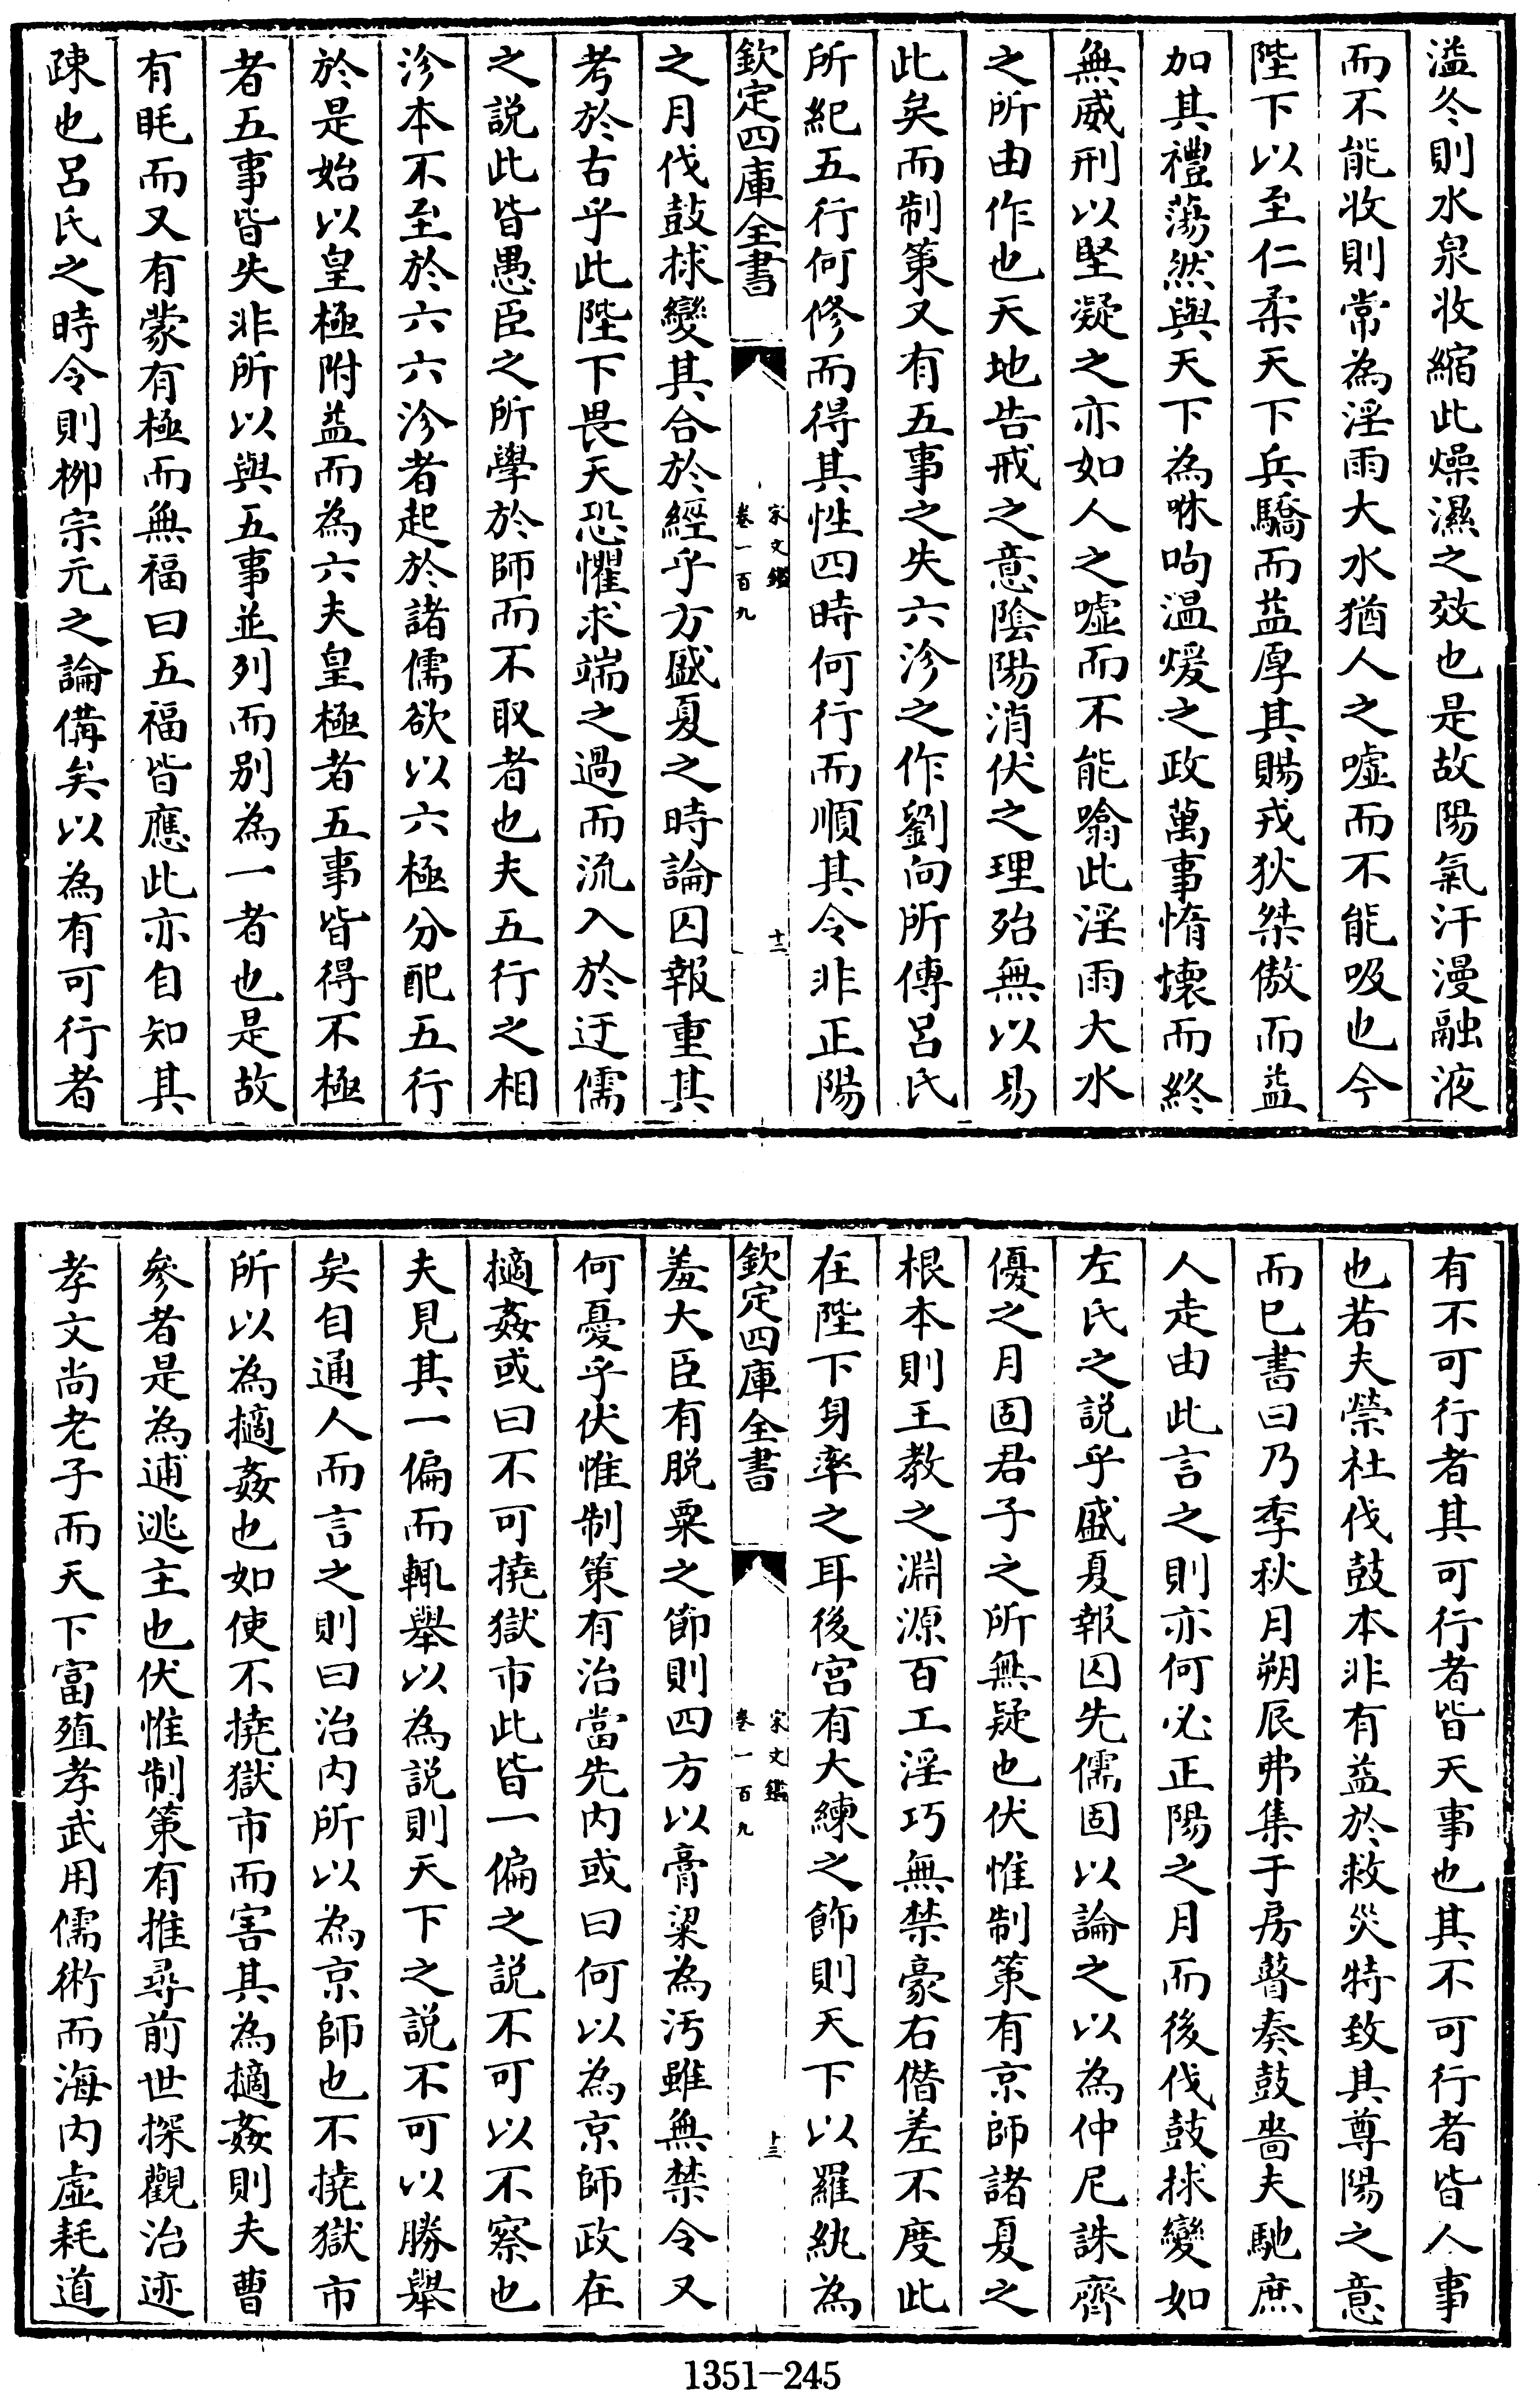 溢冬則水泉收縮此燥濕之效也是故陽氣汗漫融液
而不能收則常為淫雨大水猶人之噓而不能吸也今
陛下以至仁柔天下兵驕而益厚其賜戎狄桀傲而益
加其禮蕩然與天下為咻呴温煖之政萬事惰壞而終
無威刑以堅凝之亦如人之噓而不能噏此淫雨大水
之所由作也天地告戒之意陰陽消伏之理殆無以易
此矣而制策又有五事之失六沴之作劉向所傳呂氏
所紀五行何修而得其性四時何行而順其令非正陽
欽定四庫全書
宋文鑑
卷一百九
十二
之月伐鼓捄變其合於經乎方盛夏之時論囚報重其
考於古乎此陛下畏天恐懼求端之過而流入於迂儒
之說此皆愚臣之所學於師而不取者也夫五行之相
沴本不至於六六沴者起於諸儒欲以六極分配五行
於是始以皇極附益而為六夫皇極者五事皆得不極
者五事皆失非所以與五事並列而别為一者也是故
有眊而又有蒙有極而無福曰五福皆應此亦自知其
踈也呂氏之時令則柳宗元之論備矣以為有可行者
有不可行者其可行者皆天事也其不可行者皆人事
也若夫禜社伐鼓本非有益於救災特致其尊陽之意
而巳書曰乃季秋月朔辰弗集于房瞽奏鼓嗇夫馳庶
人走由此言之則亦何必正陽之月而後伐鼓捄變如
左氏之說乎盛夏報囚先儒固以論之以為仲尼誅齊
優之月固君子之所無疑也伏惟制策有京師諸夏之
根本則王教之淵源百工淫巧無禁豪右僭差不度此
在陛下身率之耳後宮有大練之飾則天下以羅紈為
欽定四庫全書
宋文鑑
卷一百九
十三
羞大臣有脫粟之節則四方以膏粱為汚雖無禁令又
何憂乎伏惟制策有治當先内或曰何以為京師政在
擿姦或曰不可撓獄市此皆一偏之說不可以不察也
夫見其一偏而輒舉以為說則天下之說不可以勝舉
矣自通人而言之則曰治内所以為京師也不撓獄市
所以為擿姦也如使不撓獄市而害其為擿姦則夫曹
參者是為逋逃主也伏惟制策有推尋前世探觀治迹
孝文尚老子而天下富殖孝武用儒術而海内虛耗道
1351-245